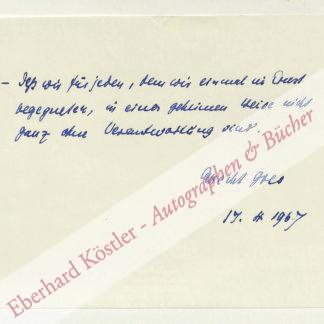 – daß wir für jeden, dem wir einmal im Ernst
begegneten, in einer geheimen Weise nicht
ganz ohne Verantwortung sind.
Albrecht Goes
1967
Eberhard Köstler - Autographen & Bücher